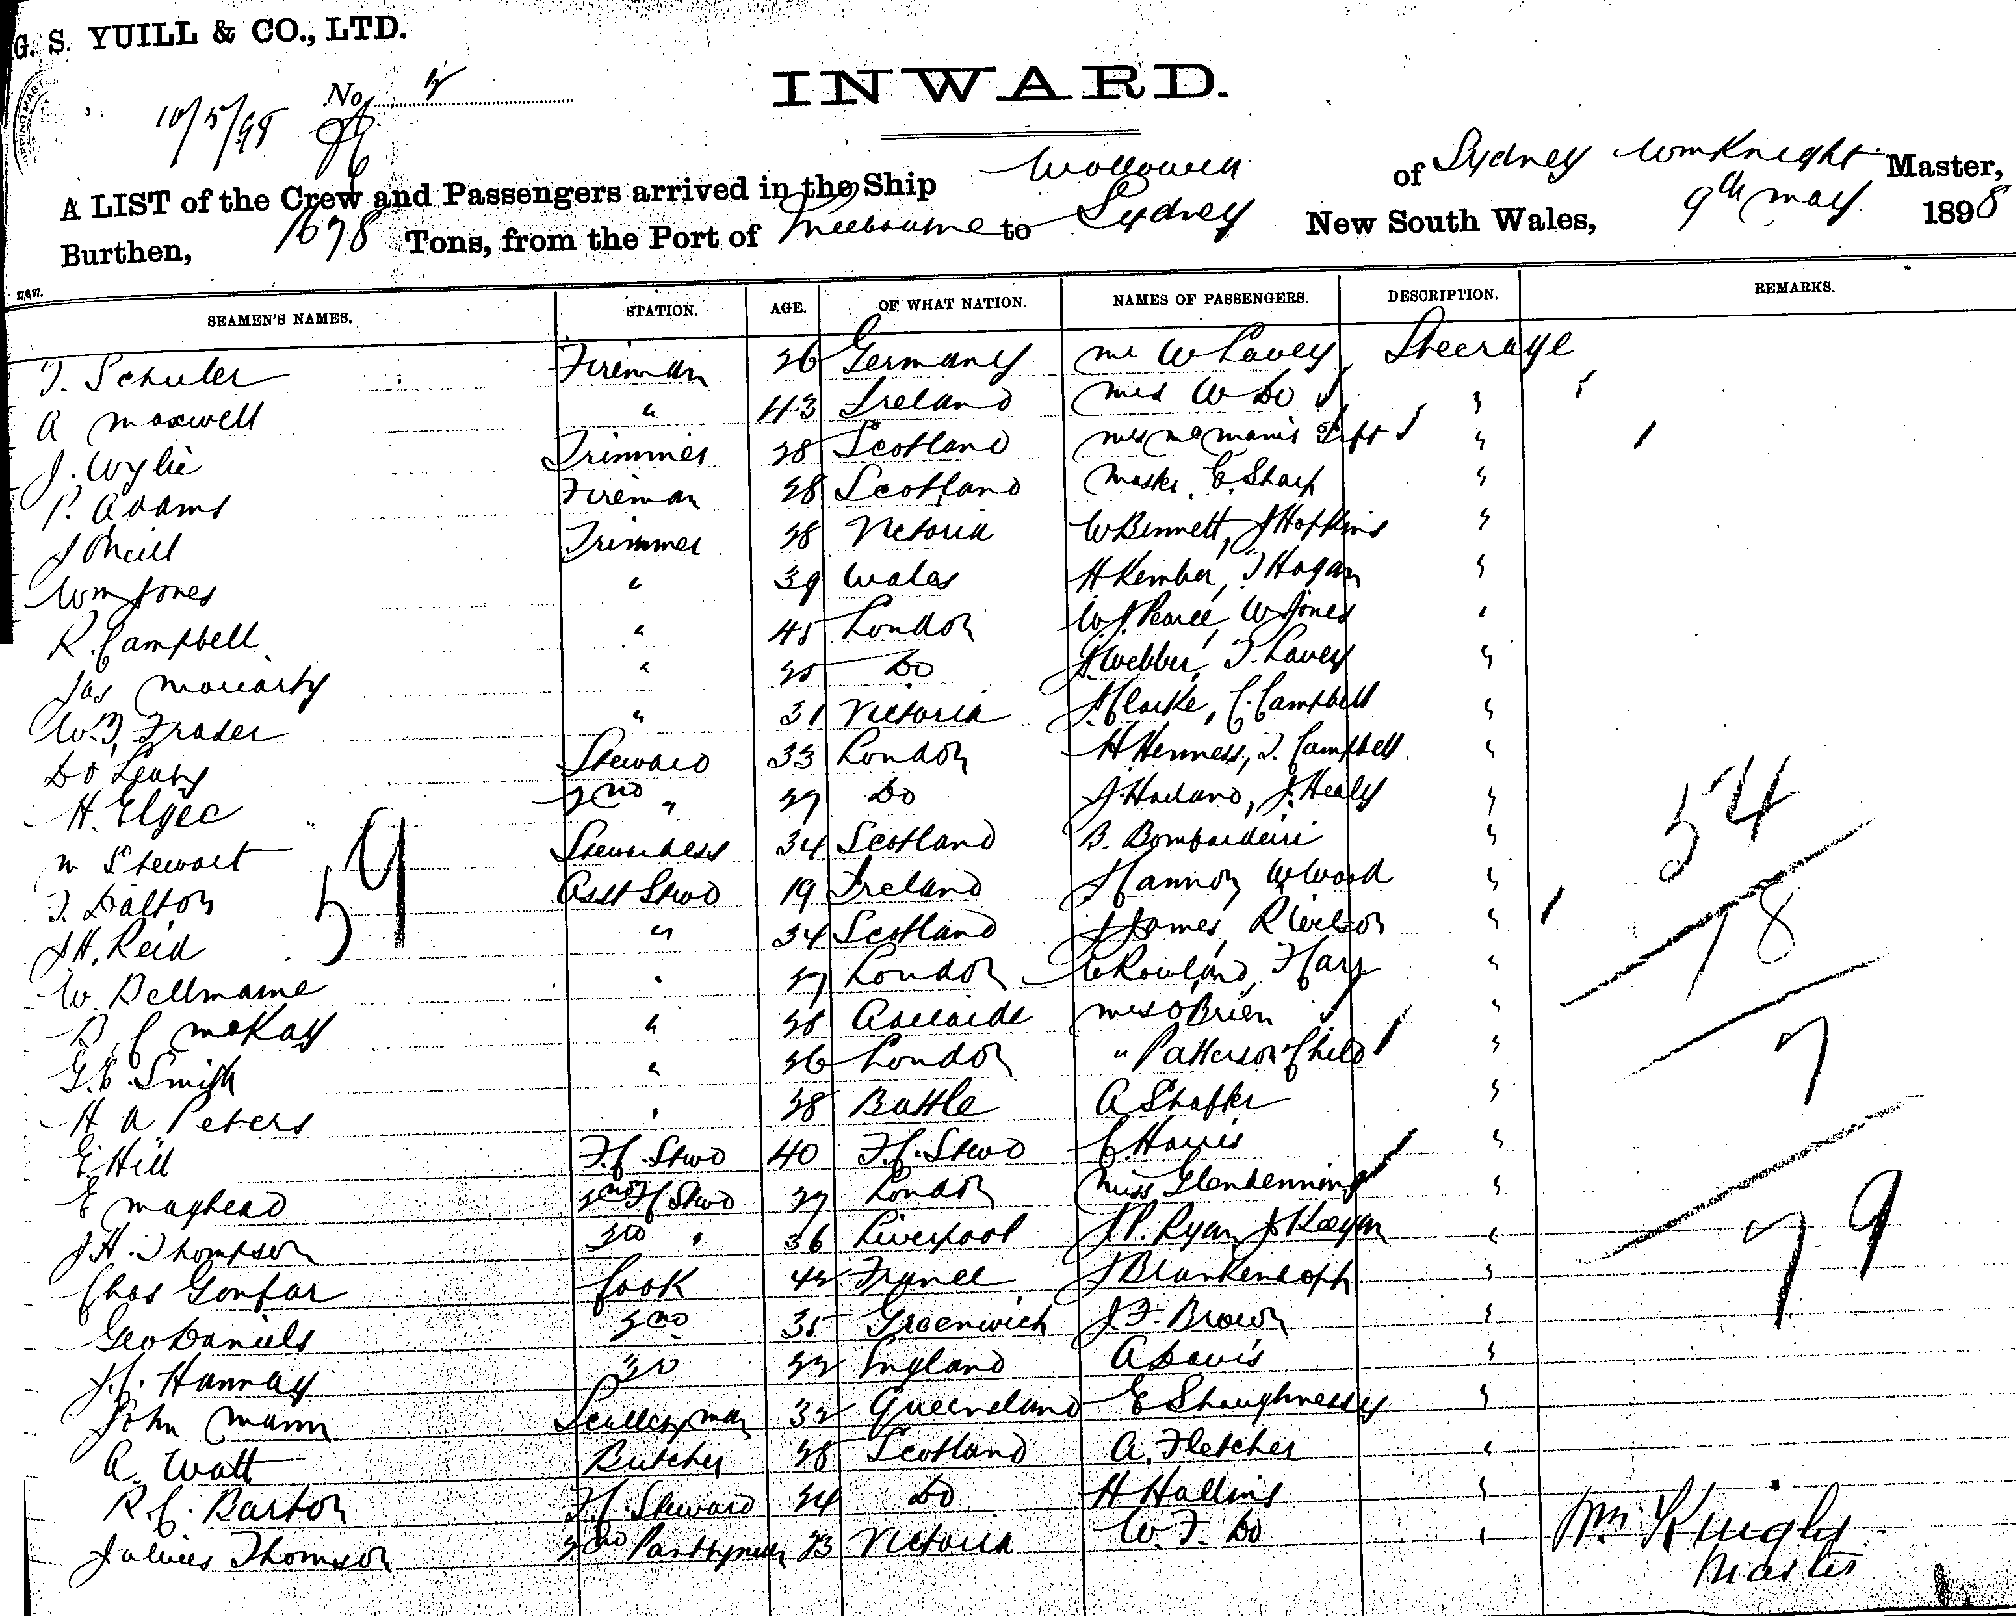 G. S. YUILL & CO., LTD.
No. 2
INWARD.
10/5/98
A LIST of the Crew and Passengers arrived in the Ship Wollowra of Sydney Wm Knight Master,
Burthen, 1678 Tons, from the Port of Melbourne to Sydney New South Wales, 9th May 1898
SEAMEN'S NAMES. STATION. AGE. OF WHAT NATION. NAMES OF PASSENGERS. DESCRIPTION. REMARKS.
T. Schuler Fireman 26 Germany Mr W Lavey Steerage
A Maxwell " 43 Ireland Mrs W Do "
J. Wylie Trimmer 28 Scotland Mrs "
P. Adams Fireman 28 Scotland Mastr. E. Sharp "
J ONeill Trimmer 28 Victoria W Bennett, J Hopkins "
Wm Jones " 39 Wales H Kember, T Hogan "
R. Campbell " 45 London W. J. Pearce, W Jones "
Jas Moriarty " 25 Do J. Webber, T. Lavey "
W. T. Fraser " 31 Victoria J. Clarke, C. Campbell "
Do Leahy Steward 33 London H Henness, T. Campbell "
H. Elgee 2nd " 27 Do J. Harland, J. Healy "
M Stewart Stewardess 34 Scotland B. Bombardieri "
T. Dalton Asst Stwd 19 Ireland J Cannon W Wood "
J H. Reid " 34 Scotland J James, R Wilson "
W. Dellmaine " 27 London W Rowland, T Cary "
D. C McKay " 28 Adelaide Mrs O'Brien "
G. E. Smith " 26 London " Patterson & Child "
H A Peters " 28 Battle A Shafter "
E Hill F. C. Stwd 40 F. C. Stwd C Harris "
E Maghead 2nd F C Stwd 27 London Miss Glendenning "
J H. Thompson 3rd " 36 Liverpool J. P. Ryan, J Keegan "
Chas Gonfar Cook 42 France J Blankensoph "
Geo Daniels 2nd 35 Greenwich J. F. Brown "
J. C. Hannay 3rd 22 England A Davis "
John Mann Scullery man 32 Queensland E Shaughnessy "
A. Watt Butcher 28 Scotland A. Fletcher "
R. C. Barton F. C. Steward 24 Do H Hollins "
Julius Thomson 2nd Pantryman 23 Victoria W. T. Do "
59
54
18
7
79
Wm Knight
Master